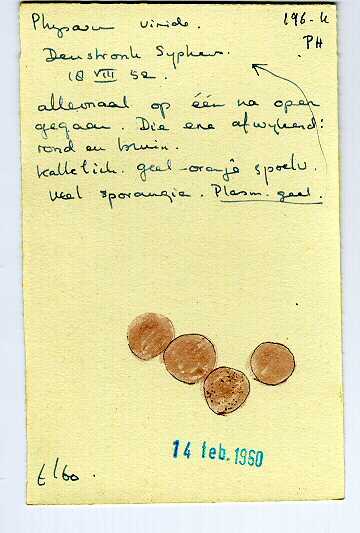 Physarum viride. 196-k
PH
Denstronk Syphem.
18 VIII 52.
allemaal op één na open
gegaan. Die ene afwijkend:
rond en bruin.
kalklich. geel-oranje spoelv.
veel sporangia. Plasm. geel.
14 feb. 1960
t/60.